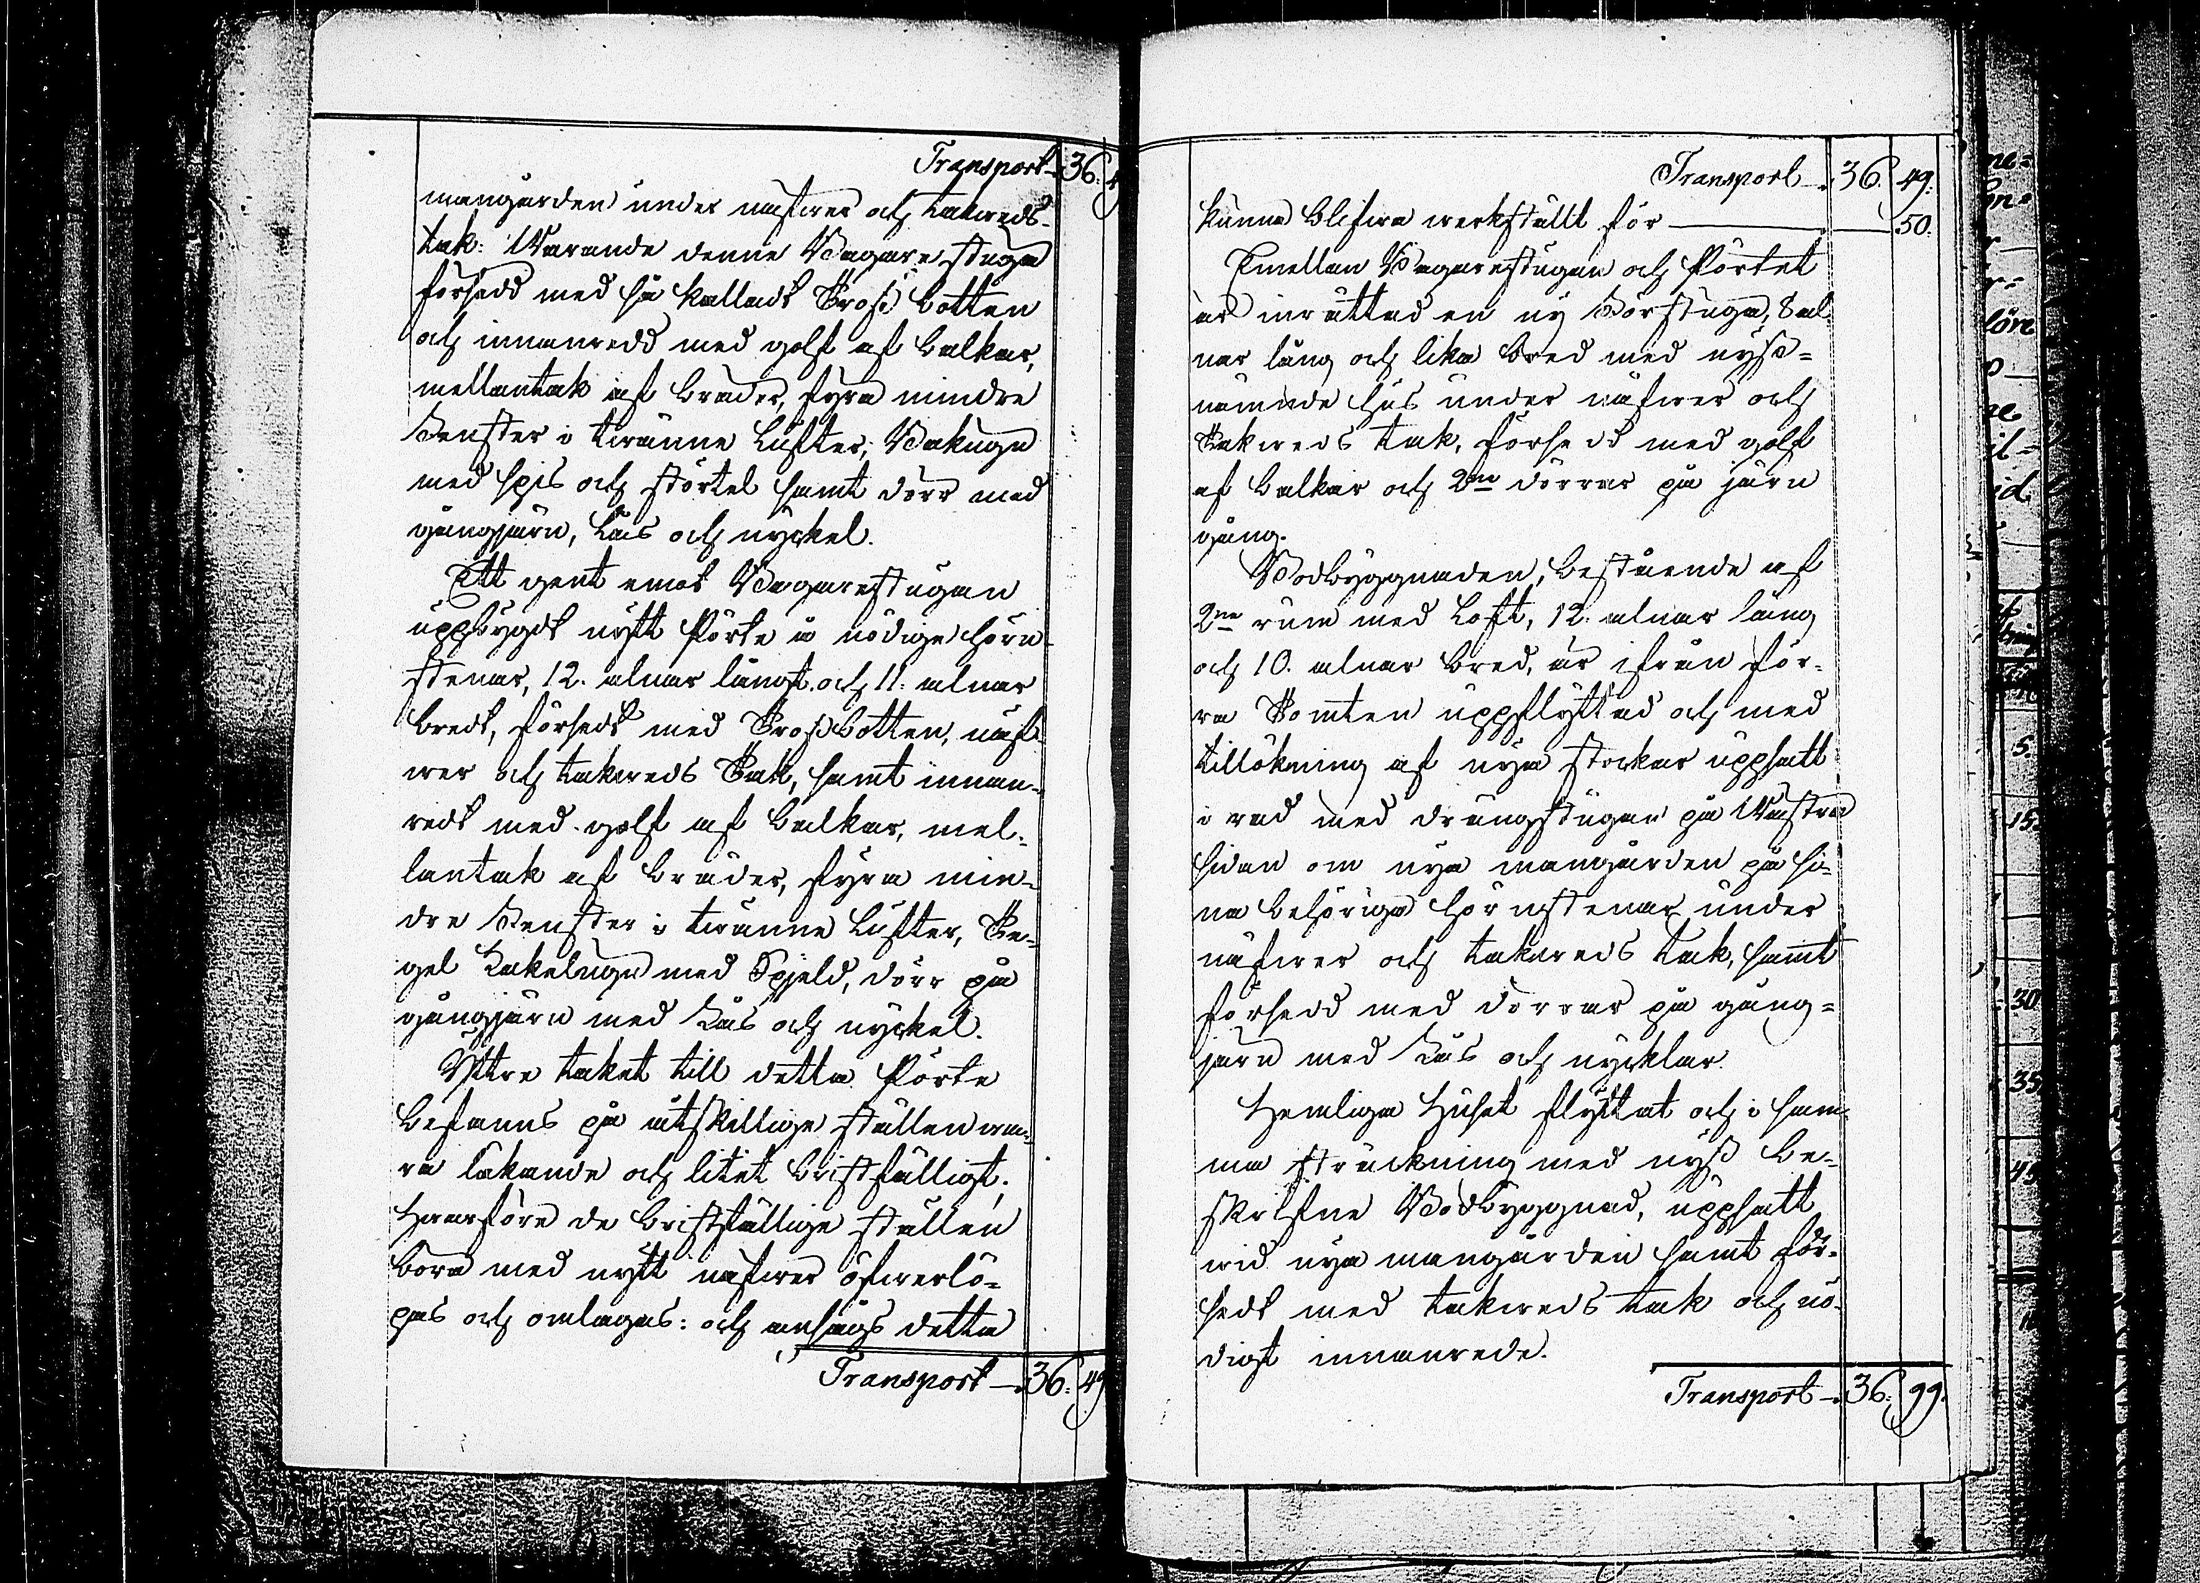 Transport — 36. 4
mangården under näfwer och takweds-
tak: Warande denne Bagare stuga
försedd med så kalladt Tross botten
och innanredd med golf af balkar,
mellantak af bräder, fyra mindre
Fenster i twänne Lufter, Bakugn
med spis och störtel samt dörr med
gångjärn, Lås och nyckel.
Ett gent emot Bagarestugan
uppbygdt nytt Pörte å nödige hörn-
stenar, 12. alnar långt och 11. alnar
bredt, försedt med Trossbotten, näf-
wer och takweds Tak, samt innan-
redt med golf af balkar, mel-
lantak af bräder, fyra min-
dre Fenster i twänne Lufter, Te-
gel Kakelugn med Spjeld, dörr på
gångjärn med Lås och nyckel.
Yttre taket till detta Pörte
befanns på åtskillige ställen wa-
ra läkande och litet bristfälligt;
Hwarföre de bristfällige ställen
böra med nytt näfwer öfwerlö-
pas och omlagas: och ansågs detta
Transport — 36. 49
Transport — 36. 49.
kunna blifwa werkställt för — 50.
Emellan Bagarestugan och Pörtet
är inrättad en ny Förstuga, 8 al-
nar lång och lika bred med nyss-
nämnde hus under näfwer och
Takweds tak, försedd med golf
af balkar och 2ne dörrar på järn
gång.
Bodbyggnaden, bestående af
2ne rum med Loft, 12. alnar lång
och 10. alnar bred, är ifrån för-
ra Tomten uppflyttad och med
tillökning af nya stockar uppsatt
i rad med drängstugan på Wästra
sidan om nya mangården på si-
na behöriga hörnstenar under
näfwer och takweds tak, samt
försedd med dörrar på gång-
järn med Lås och nycklar.
Hemliga Huset flyttat och i sam-
ma sträckning med nyss be-
skrefne Bodbyggnad, uppsatt
wid nya mangården samt för-
sedt med takweds tak och nö-
digt innanrede.
Transport — 36. 99.